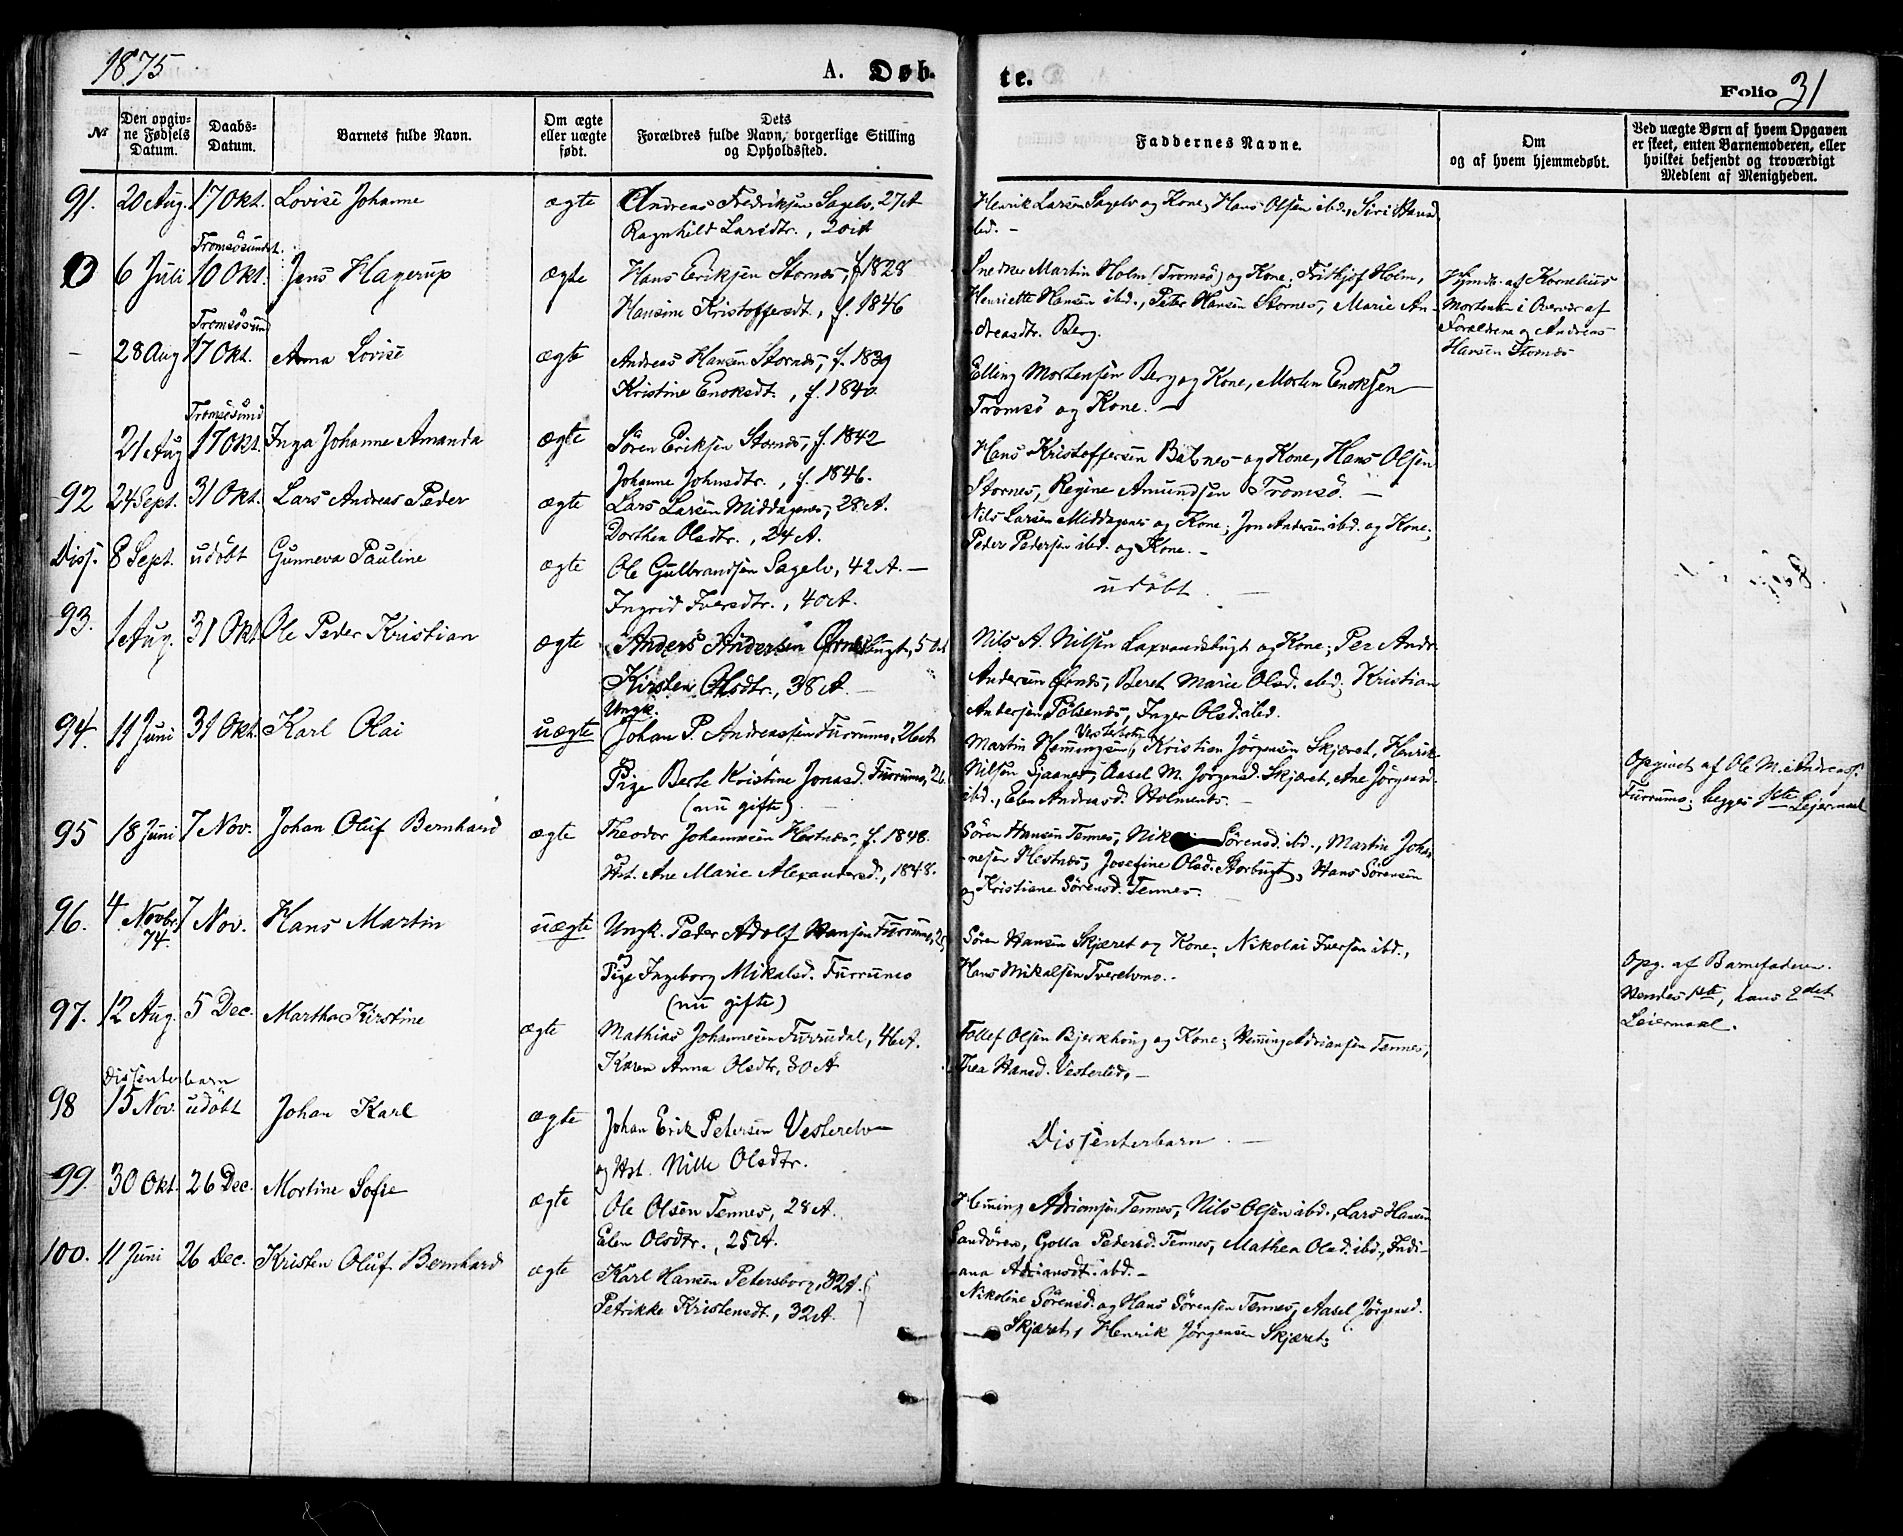 1875
A. Døb-
te.
Folio 31
№
Den opgiv-
ne Fødsels
Datum.
Daabs-
Datum.
Barnets fulde Navn.
Om ægte
eller uægte
født.
Dets
Forældres fulde Navn, borgerlige Stilling
og Opholdssted.
Faddernes Navne.
Om
og af hvem hjemmedøbt.
Ved uægte Børn af hvem Opgaven
er skeet, enten Barnemoderen, eller
hvilket bekjendt og troværdigt
Medlem af Menigheden.
91. 20 Aug. 17 Okt. Lovise Johanne ægte Andreas Fredriksen Sagelv, 27 A
Ragnhild Larsdtr., 20 A
Henrik Larsen Sagelv og Kone, Hans Olsen ibd., Siri Hansd
ibd. -
Tromsösundet.
6 Juli 10 Okt. Jens Hagerup ægte Hans Eriksen Stornæs, f. 1828
Hansine Kristoffersdt., f. 1846
Snedker Martin Holm (Tromsö) og Kone, Fridtjof Holm,
Henriette Hansen ibd., Peter Hansen Stornes, Marie An-
dreasdtr. Berg.
Hjmdb. af Kornelius
Mortensen i Overvær af
Forældrene og Andreas
Hansen Stornæs
Tromsösund
- 28 Aug 17 Okt. Anna Lovise ægte Andreas Hansen Stornæs, f. 1839
Kristine Enoksdt., f. 1840.
Elling Mortensen Berg og Kone, Morten Enoksen
Tromsö og Kone. -
Tromsösund
21 Aug 17 Okt. Inga Johanne Amanda ægte Sören Eriksen Stornæs, f. 1842
Johanne Johnsdtr., f. 1846.
Hans Kristoffersen Balsnes og Kone, Hans Olsen
Stornes, Regine Amundsen Tromsö. -
92 24 Sept. 31 Okt. Lars Andreas Peder ægte Lars Larsen Middagsnes, 28 A.
Dorthea Olsdtr., 24 A.
Nils Larsen Middagsnes og Kone; Jon Andersen ibd. og Kone;
Peder Pedersen ibd. og Kone. -
Diss. 8 Sept. udöbt Gunneva Pauline ægte Ole Gulbrandsen Sagelv, 42 A. -
Ingrid Iversdtr., 40 A.
udöbt. -
93. 1 Aug. 31 Okt. Ole Peder Kristian ægte Anders Andersen Ørnesbugt, 50 A
Kirsten Olsdtr., 38 A. -
Nils A. Nilsen Laxvandsbugt og Kone; Per Andr.
Andersen Ørnæs, Beret Marie Olsd. ibd; Kristian
Andersen Pölsenæs, Inger Olsd. ibd.
94. 11 Juni 31 Okt. Karl Olai uægte
Ungk.
Johan P. Andreassen Furrumo, 26 A
Pige Berte Kristine Jonasd. Furrumo, 26.
(nu gifte). -
Vesterbotn
Martin Hemmingsen, Kristian Jörgensen Skjæret, Henrik
Nilsen Sjaanes, Aasel M. Jörgensd. Skjæret, Ane Jörgensd.
ibd., Elen Andreasd. Holmenes. -
Opgivet af Ole M. Andreass.
Furrumo; begges 1ste Leiermaal
95 18 Juni 7 Nov. Johan Oluf Bernhard ægte Theodor Johannesen Hestnæs, f. 1848.
Hst. Ane Marie Alexandersd., 1848.
Sören Hansen Tennes, Nik Sörensd. ibd., Martin Johan
nesen Hestnæs, Josefine Olsd. Storbugt, Hans Sörensen
og Kristiane Sörensd. Tennes. -
96. 4 Novbr. 7 Nov. Hans Martin uægte Ungk. Peder Adolf Hansen Furrumo, 25
74.
Pige Ingeborg Mikalsd. Furrumo
(nu gifte)
Sören Hansen Skjæret og Kone; Nikolai Iversen ibd.,
Hans Mikalsen Tverelvmo. -
Opg. af Barnefaderen.
Hendes 1ste, hans 2det
Leiermaal.
97. 12 Aug. 5 Dec. Martha Kirstine ægte Mathias Johannesen Furrudal, 46 A.
Karen Anna Olsdtr, 30 A.
Follef Olsen Bjerkhoug og Kone; Heming Adriansen Tennes,
Thea Hansd. Vesterlid. -
Dissenterbarn
98 15 Nov. udöbt Johan Karl ægte Johan Erik Petersen Vesterelv
og Hst. Nille Olsdtr.
Dissenterbarn. -
99. 30 Okt. 26 Dec. Mortine Sofie ægte Ole Olsen Tennes, 28 A.
Elen Olsdtr., 25 A.
Heming Adriansen Tennes, Nils Olsen ibd., Lars Hansen
Sandören, Golla Pedersd. Tennes, Mathea Olsd. ibd., Indi-
ana Adriansdt. ibd. -
100. 11 Juni 26 Dec. Kristen Oluf Bernhard ægte Karl Hansen Petersborg, 32 A.
Petrikke Kristensdt., 32 A.
Nikoline Sörensd. og Hans Sörensen Tennes, Aasel Jörgensd.
Skjæret, Henrik Jörgensen Skjæret;